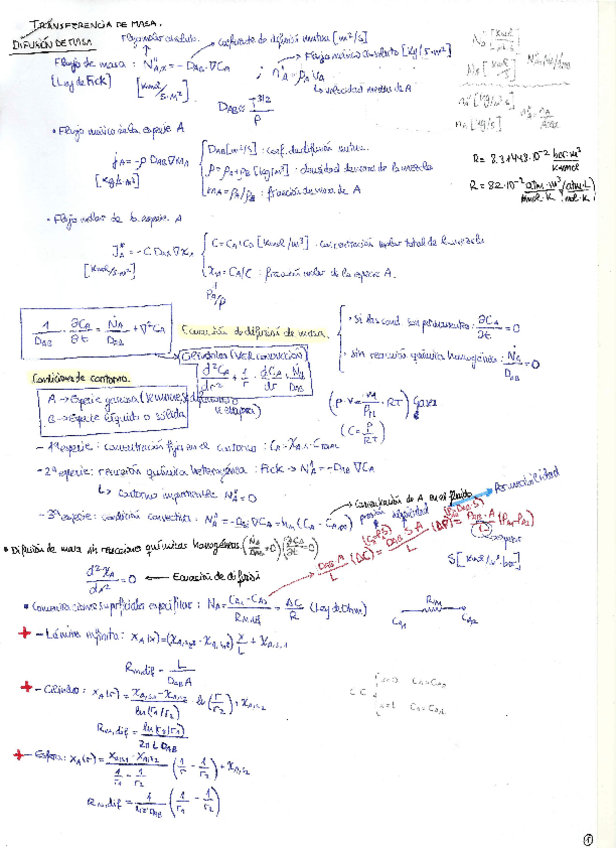 TRANSFERENCIA DE MASA.
DIFUSIÓN DE MASA
Flujo molar absoluto.
coeficiente de difusión mutua [m²/s]
Flujo de masa : N"A,x = -DAB·∇CA ; n"A = ρA VA
Flujo másico absoluto [kg/s·m²]
(Ley de Fick) [kmol/s·m²]
velocidad media de A
DAB ∝ T^3/2 / P
• Flujo másico de la especie A
jA = -ρ DAB ∇mA
[kg/s·m²]
DAB [m²/s] : coef. de difusión mutua.
ρ = ρA + ρB [kg/m³] : densidad de masa de la mezcla
mA = ρA/ρ : fracción de masa de A
R = 8.31448·10⁻² bar·m³/kmol·K
R = 82·10⁻³ atm·m³/kmol·K (atm·L/mol·K)
• Flujo molar de la especie A
J*A = -C DAB ∇xA
[kmol/s·m²]
C = CA + CB [kmol/m³] : concentración molar total de la mezcla
xA = CA/C : fracción molar de la especie A.
PA/P
1/DAB · ∂CA/∂t = ṄA/DAB + ∇²CA
Ecuación de difusión de masa.
· si las cond. son permanentes : ∂CA/∂t = 0
· sin reacción química homogénea : ṄA/DAB = 0
d²CA/dr² + 1/r · dCA/dr + ṄA/DAB
Condiciones de contorno.
A → Especie gaseosa
B → Especie líquida o sólida
(P·V = m/PM · RT) Gases
(C = P/RT)
- 1ª especie : concentración fija en el contorno : CA = xA·CTOTAL
- 2ª especie : reacción química heterogénea : Fick → N"A = -DAB ∇CA
↳ contorno impermeable N"A = 0
Concentración de A en el fluido
Permeabilidad
- 3ª especie : condición convectiva : N"A = -DAB ∇CA = hm (CA - CA,∞)
• Difusión de masa sin reacciones químicas homogéneas (ṄA/DAB = 0) (∂CA/∂t = 0)
DAB·A/L (ΔC) = DAB·S·A/L (ΔP) = PAB·A/L (PA1 - PA2)
S [kmol/m³·bar]
d²xA/dx² = 0 ← Ecuación de difusión
• Concentraciones superficiales específicas : NA = CA1 - CA2 / Rm,dif = ΔC/R (Ley de Ohm)
CA1 Rm CA2
- Lámina infinita : xA(x) = (xA,s2 - xA,s1) x/L + xA,s1
Rm,dif = L/DAB A
- Cilindro : xA(r) = xA,s1 - xA,s2 / ln(r1/r2) · ln(r/r2) + xA,s2
Rm,dif = ln(r2/r1) / 2π L DAB
- Esfera : xA(r) = xA,s1 - xA,s2 / 1/r1 - 1/r2 (1/r - 1/r2) + xA,s2
Rm,dif = 1/4π DAB (1/r1 - 1/r2)
1